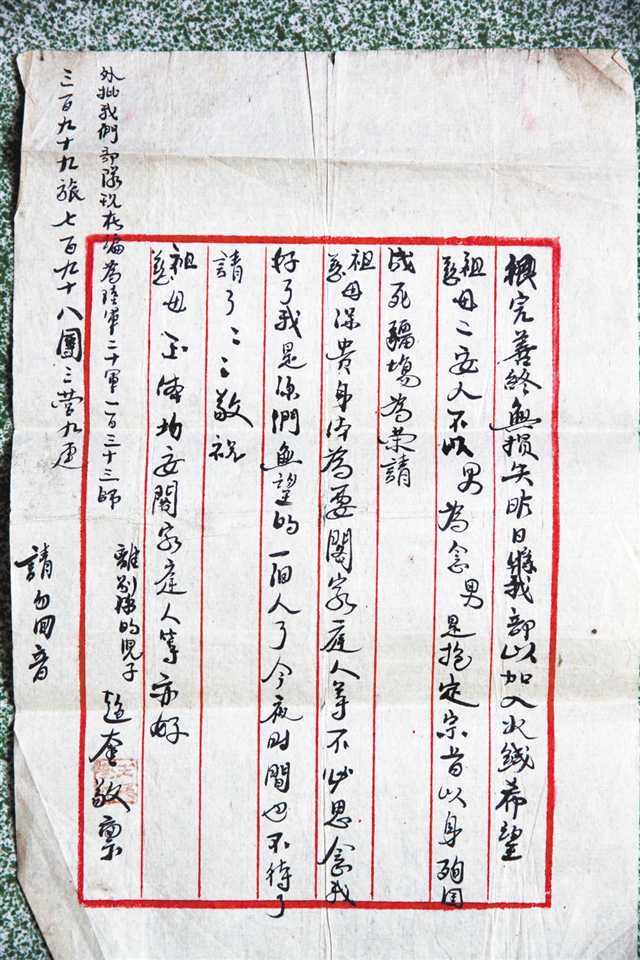 根完善終無損失昨日將我部以加入火线希望
祖母二安人不以男為念男是抱定宗旨以身殉国
战死疆塲為荣請
祖母保貴身体為要閤家庭人等不必思念我
好了我是你們無望的一個人了今夜时間也不待了
請了二三敬祝
祖母玉体均安閤家庭人等亦好
離別掉的児子
趙奎敬禀
外批我們部隊現在编為陸軍二十軍一百三十三師
三百九十九旅七百九十八團三营九連
請勿回音